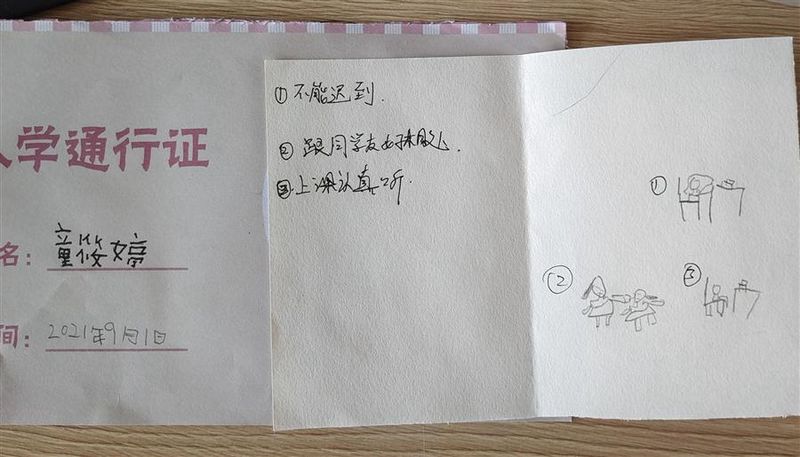 入学通行证
名：童筱婷
间：2021年9月1日
①不能迟到.
②跟同学友好
③上课认真听.
①
②
③